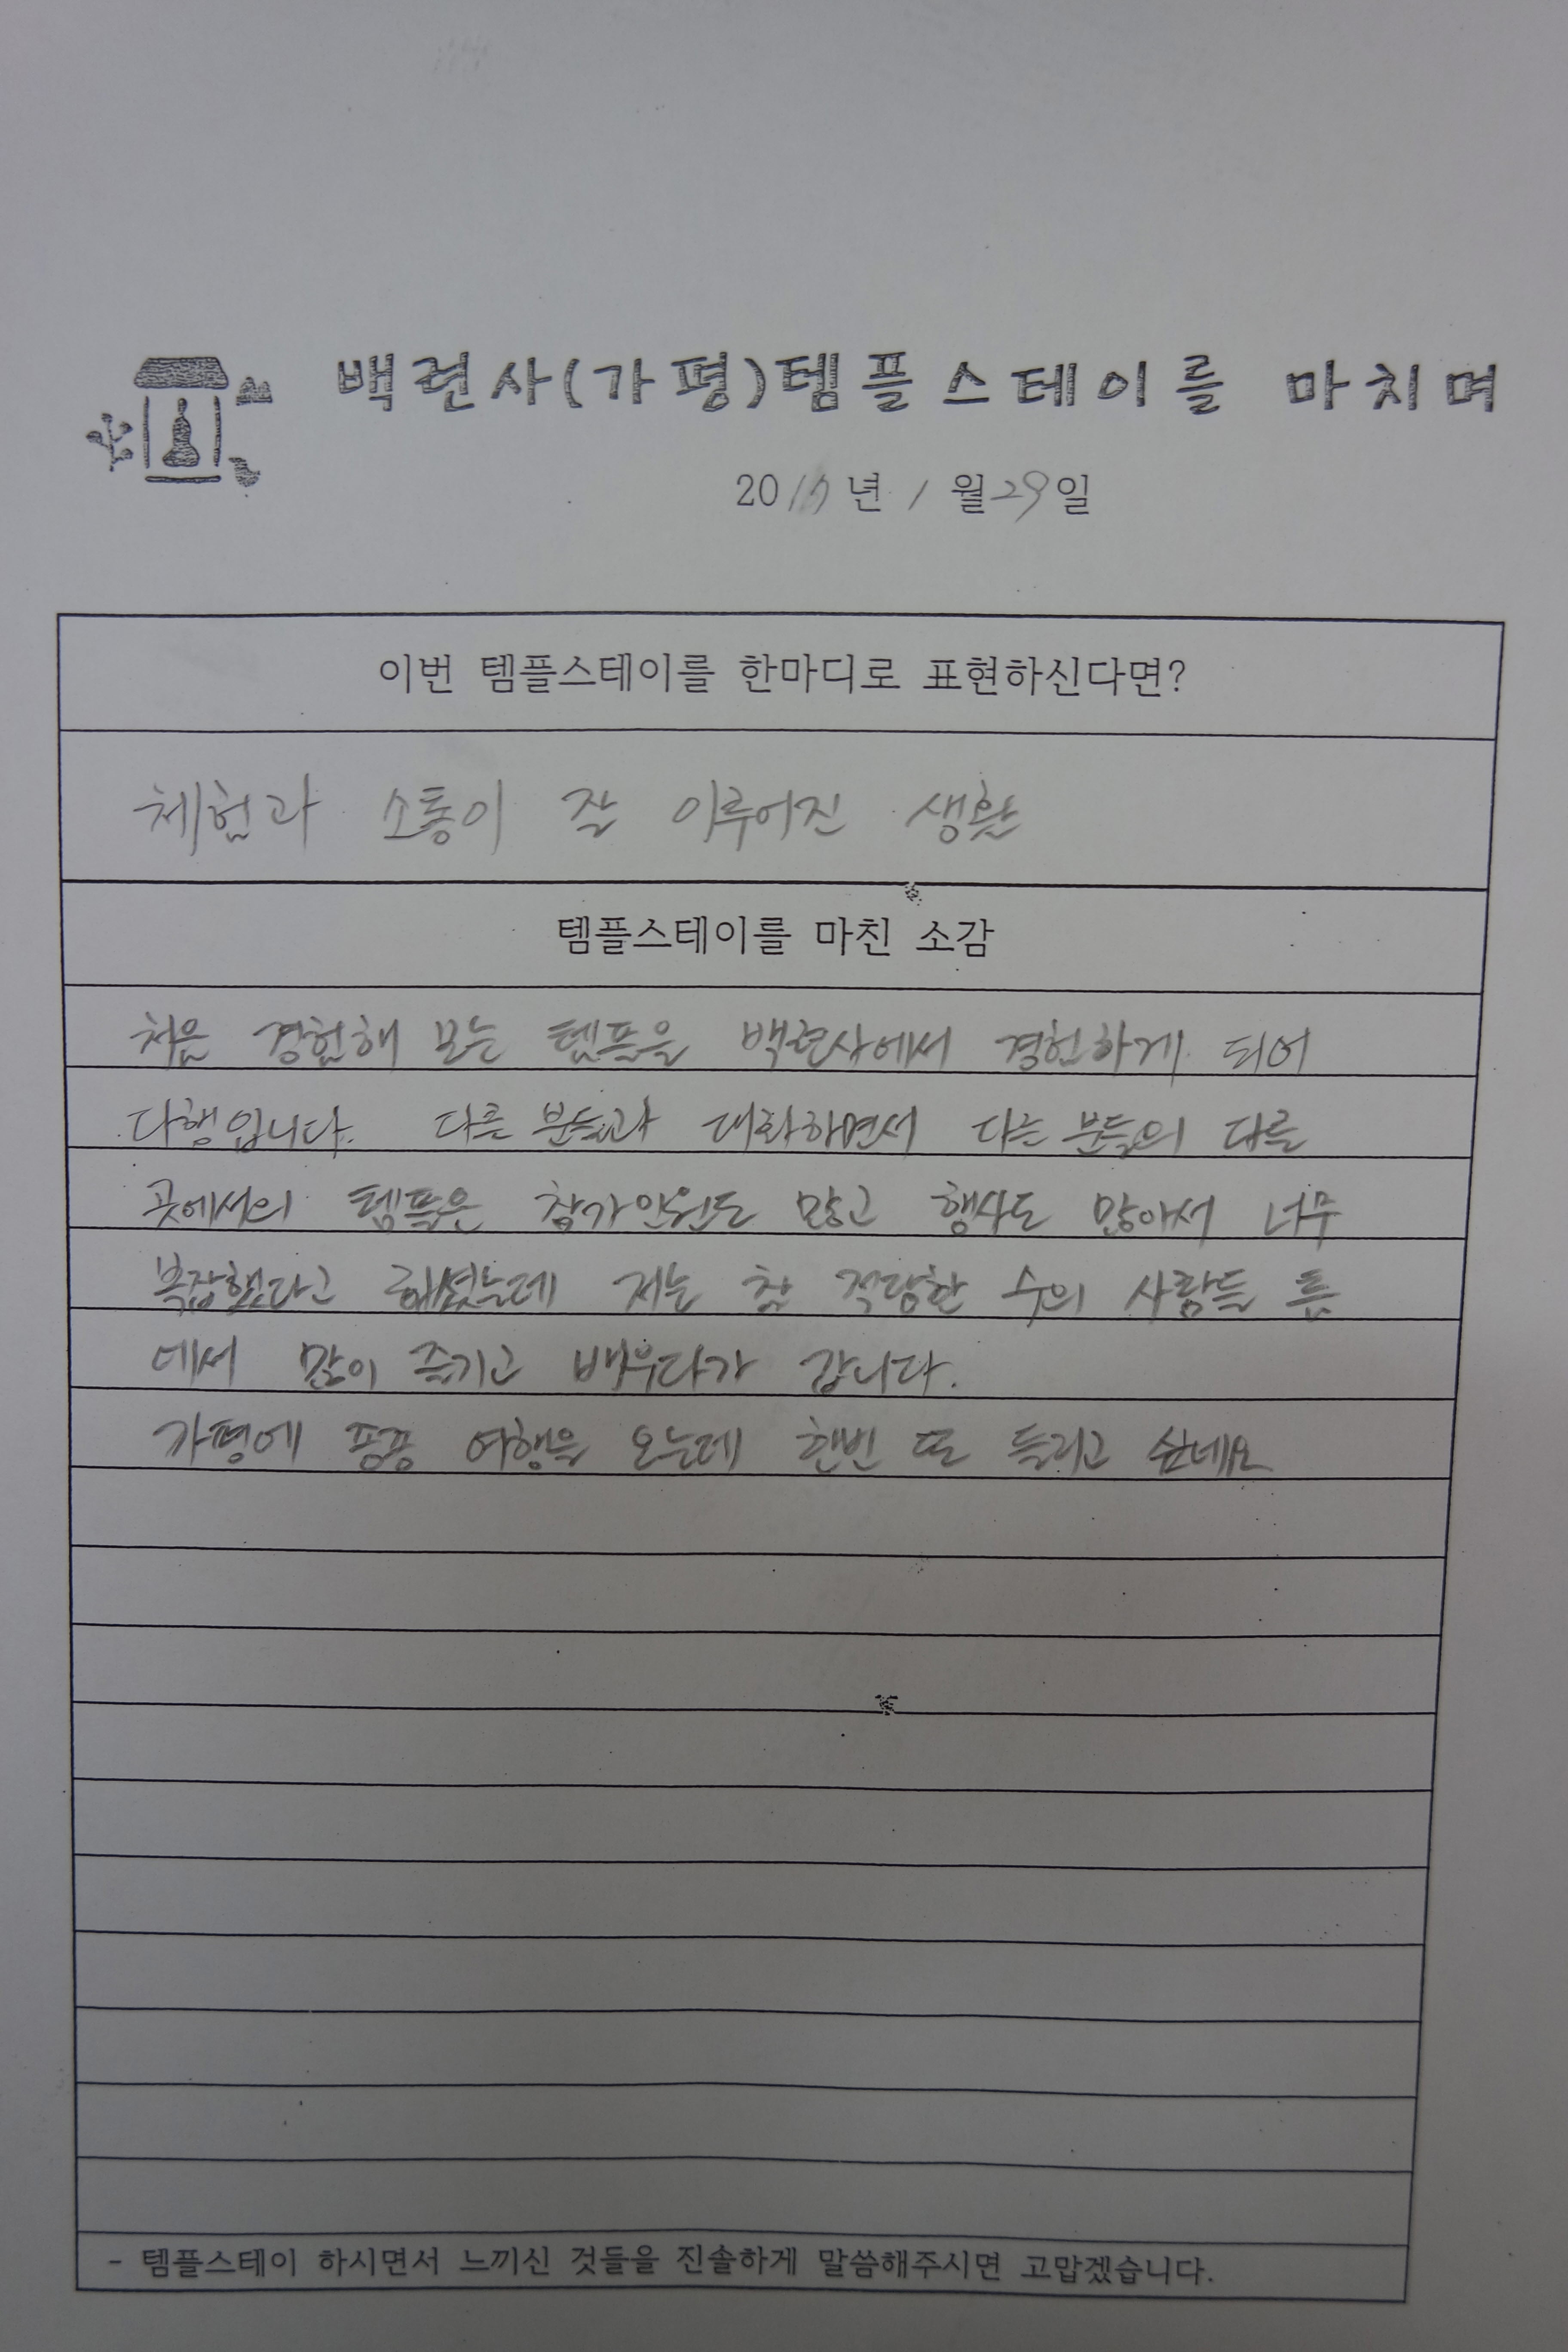 백련사(가평)템플스테이를 마치며
2017년 1월 29일
이번 템플스테이를 한마디로 표현하신다면?
체험과 소통이 잘 이루어진 생활
템플스테이를 마친 소감
처음 경험해 보는 템플을 백련사에서 경험하게 되어
다행입니다. 다른 분들과 대화하면서 다른 분들의 다른
곳에서의 템플은 참가인원도 많고 행사도 많아서 너무
복잡했다고 하셨는데 저는 참 적당한 수의 사람들 틈
에서 많이 즐기고 배우다가 갑니다.
가평에 종종 여행을 오는데 한번 또 들리고 싶네요
- 템플스테이 하시면서 느끼신 것들을 진솔하게 말씀해주시면 고맙겠습니다.